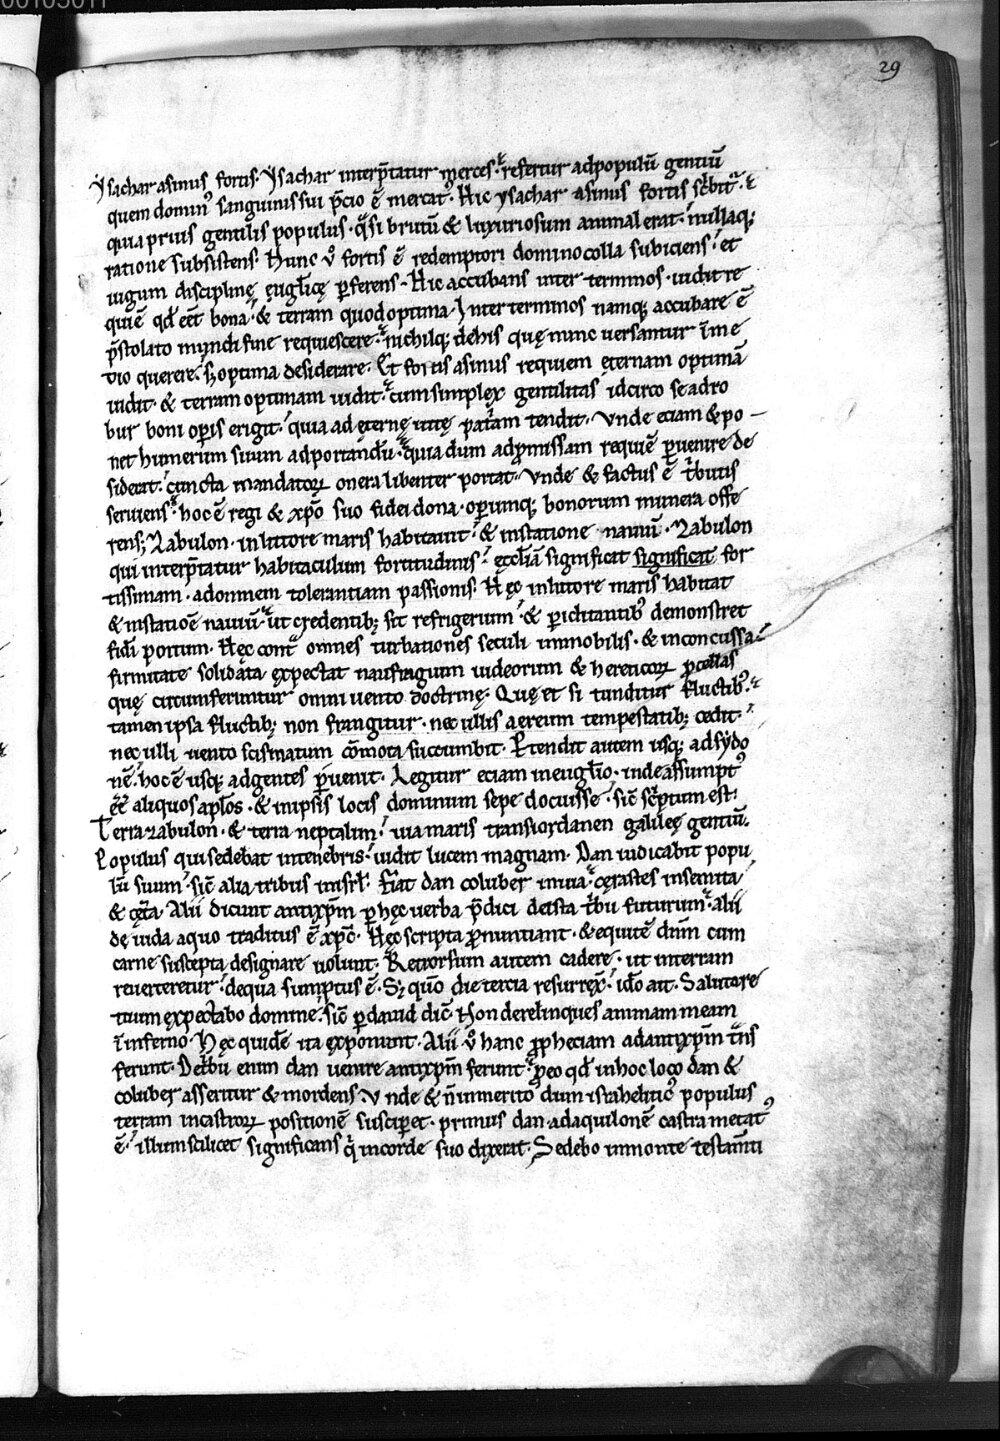 29
Ysachar asinus fortis. Ysachar interp̄tatur merces. refertur ad populū gentiū
quem domin᷒ sanguinis sui p̄cio ē mercat᷒. Hic ysachar asinus fortis sc̄bit᷒.
quia prius gentilis populus. q̄si brutū & luxuriosum animal erat. nullaq;
ratione subsistens. Hunc v̊ fortis ē redemptori domino colla subiciens. et
iugum disciplinę euḡlicę p̄ferens. Hic accubans inter terminos. uidit re
quiē qd̄ eēt bona. & terram quod optima. Inter terminos namq; accubare ē
p̄stolato mundi fine requiescere. nichilq; de his quę nunc versantur ī me
dio querere. s; optima desiderare. Et fortis asinus requiem ęternam optimā
uidit. & terram optimam uidit. cum simplex gentilitas idcirco se ad ro
bur boni op̄is erigit. quia ad ęternę uitę pat̄am tendit. Vnde eciam &po
net humerum suum ad portandū. quia dum ad p̄missam requiē p̄uenire de
siderat. cuncta mandatoꝝ onera libenter portat. Vnde & factus ē t̄butis
seruiens. hoc ē regi & xp̄o suo fidei dona. operumq; bonorum munera offe
rens; Zabulon. in littore maris habitauit. & in statione nauiū. Zabulon
qui interp̄tatur habitaculum fortitudinis. ęccl̄iā significat significat for
tissimam. ad omnem tolerantiam passionis. Hęc in littore maris habitat
& in statiōe nauiū. ut credentib; sit refrigerium. & periclitantib᷒ demonstret
fidi portum. Hęc cont̄ omnes turbationes seculi immobilis. & inconcussa
firmitate solidata expectat naufragium iudeorum & hereticoꝝ p̄cellas
quę circumferuntur omni uento doctrinę. Quę et si tunditur fluctib᷒.
tamen ipsa fluctib; non frangitur. nec ullis aereum tempestatib; cedit.
nec ulli uento scismatum cōmota succumbit. P̄tendit autem usq; ad sydo
nē. hoc ē usq; ad gentes p̄uenit. Legitur eciam in euḡlio. inde assumpt᷒
ēē aliquos apl̄os. & in ipsis locis dominum sepe docuisse. sic̄ sc̄ptum est.
Terra zabulon. & terra neptalim. uia maris trans iordanen galileę gentiū.
Populus qui sedebat in tenebris. uidit lucem magnam. Dan iudicabit popu
lū suum. sic̄ alia tribus in isr̄l. Fiat dan coluber in uia. cęrastes in semita
& cęt̄a. Alii dicunt antixp̄m p̄ hęc uerba p̄dici de ista t̄bu futurum. alii
de iuda a quo traditus ē xp̄c. Hęc scripta p̄nuntiant. & equitē dn̄m cum
carne suscepta designare uolunt. Retrorsum autem cadere. ut in terram
reuerteretur. de qua sumptus ē. S; quō die tercia resurrex̄. idō ait. Salutare
tuum expectabo domine. sic̄ p̄ dauid dic̄. Non derelinques animam meam
ī inferno. Hęc quidē ita exponunt. Alii v̊ hanc p̄pheciam ad antixp̄m t̄ns
ferunt. De t̄bu enim dan uenire antixp̄m ferunt. p̄ eo qd̄ in hoc loco dan &
coluber asseritur & mordens. Vnde & n̄ inmerito dum israhelitic᷒ populus
terram in castroꝝ positionē susciperet. primus dan ad aquilonē castra metat᷒
ē. illum scilicet significans q̄ in corde suo dixerat. Sedebo in monte testam̄ti